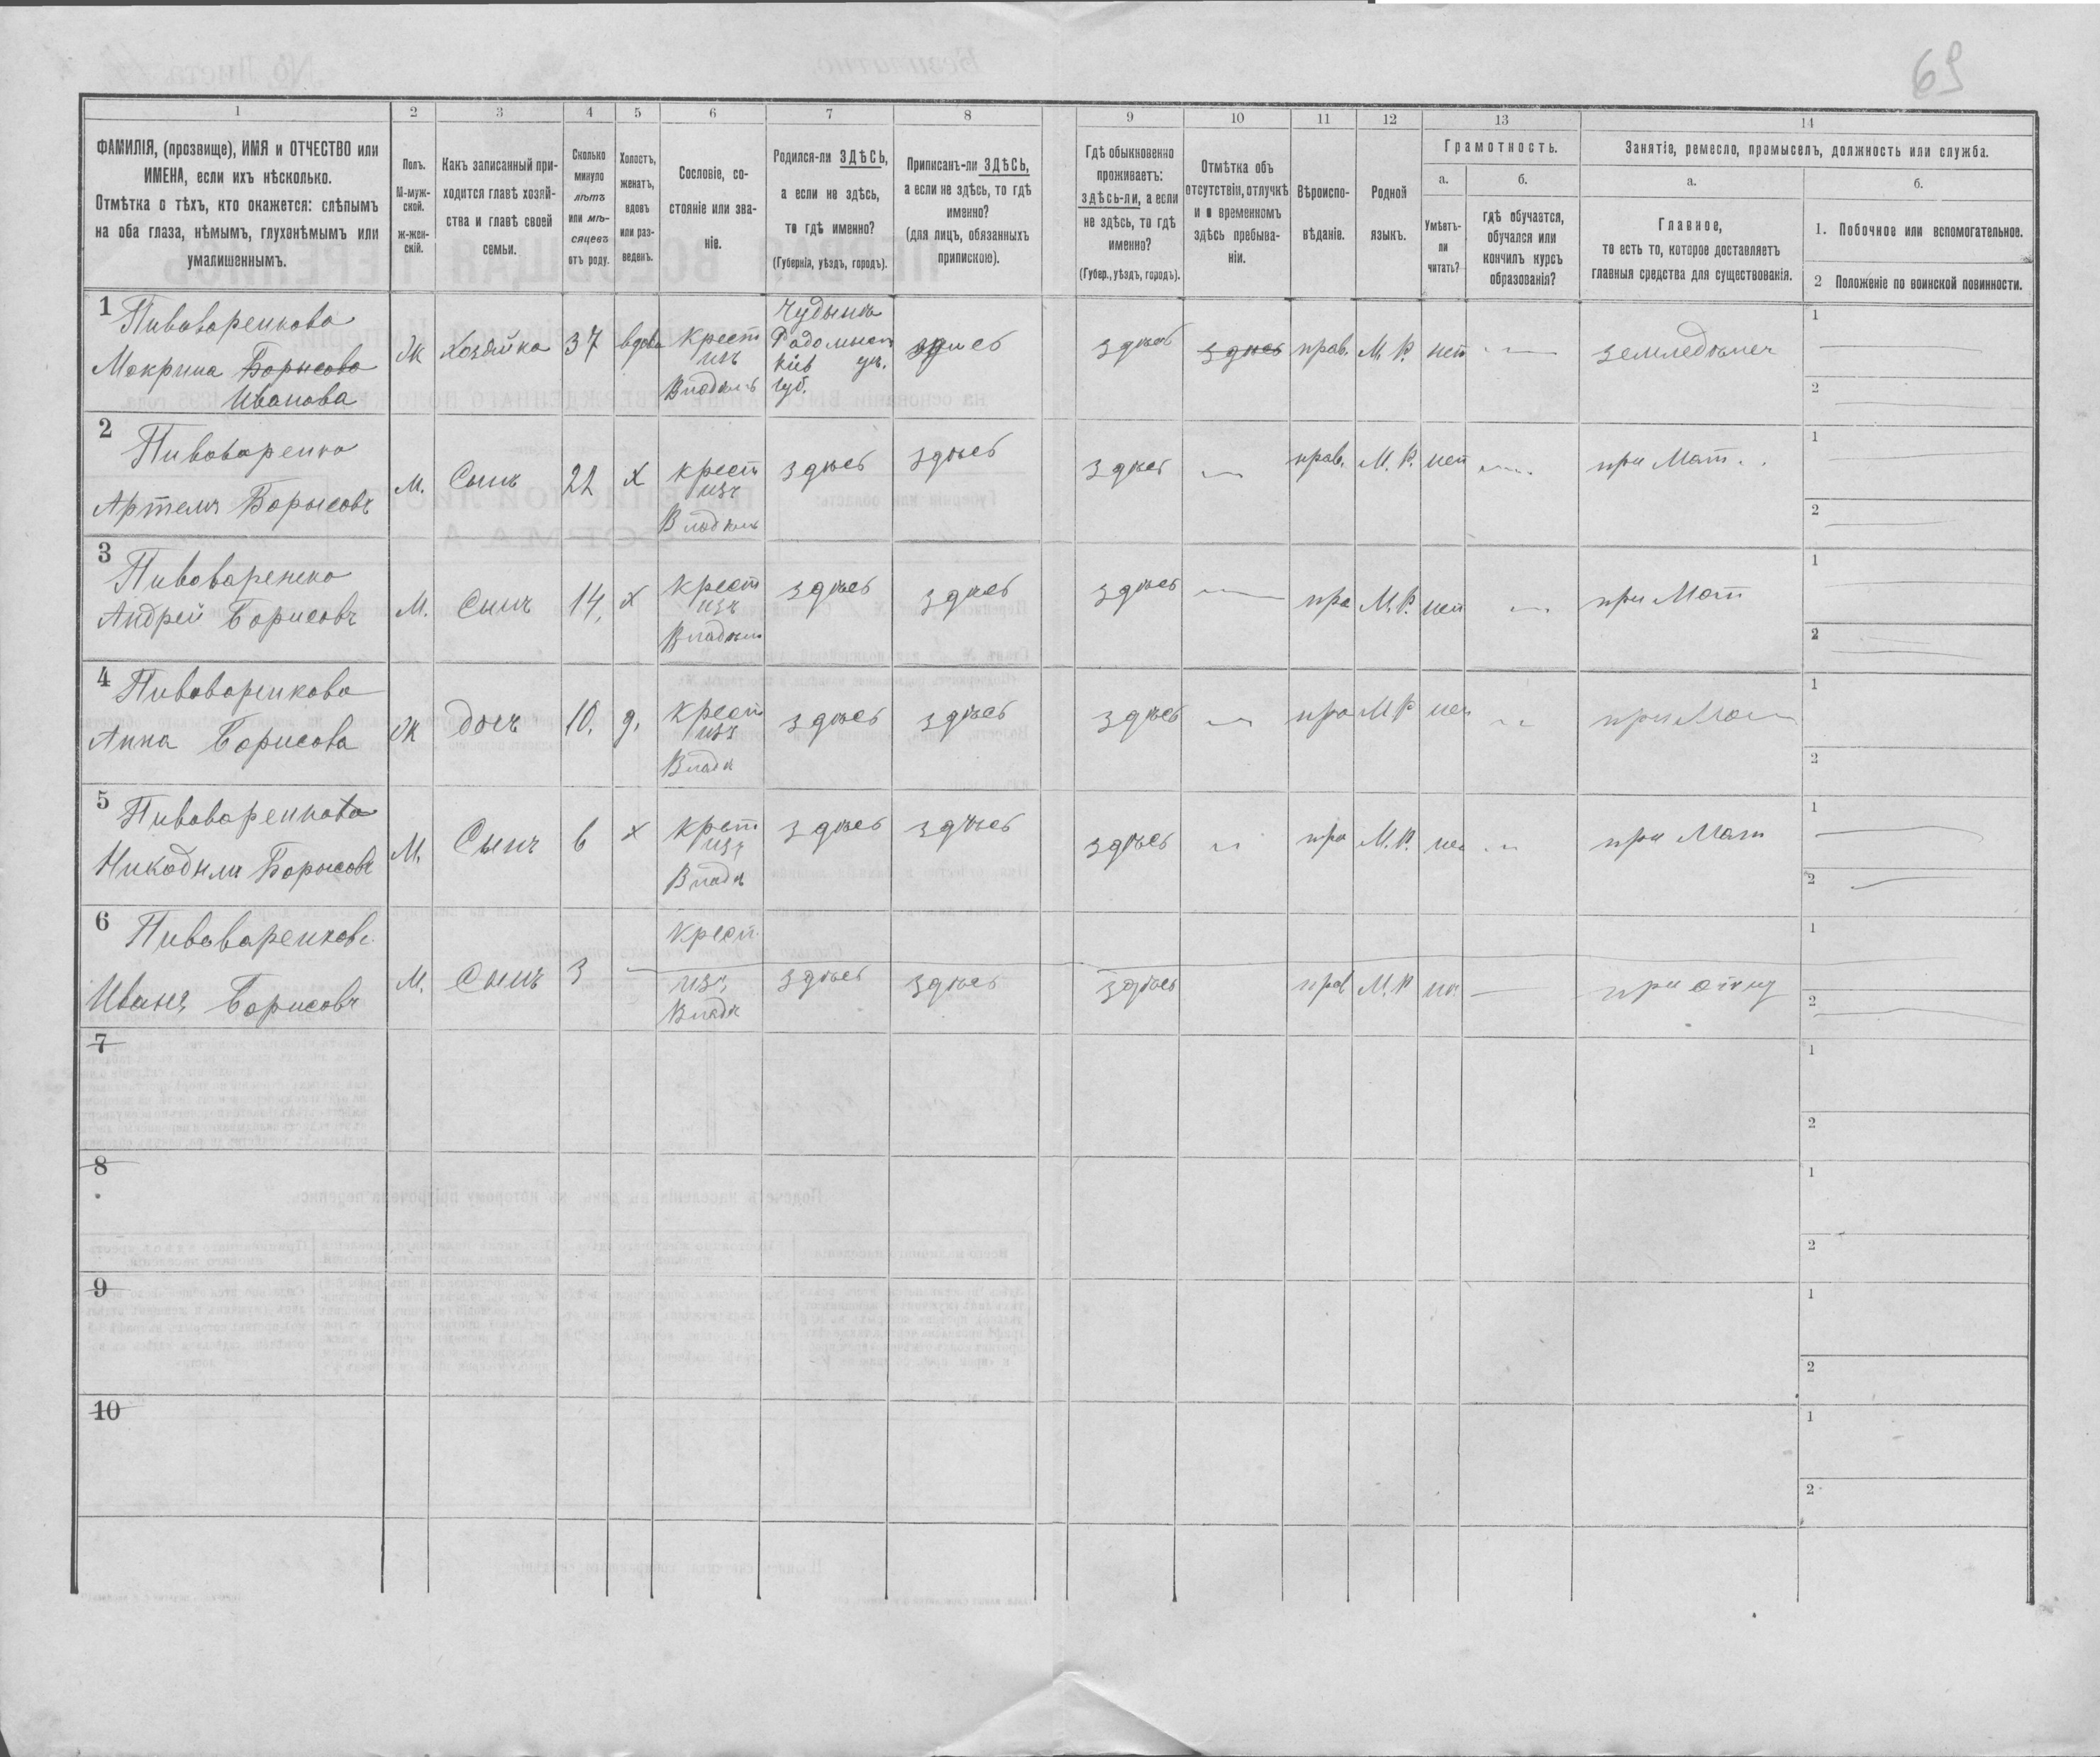 69
1 2 3 4 5 6 7 8 9 10 11 12 13 14
ФАМИЛІЯ, (прозвище), ИМЯ и ОТЧЕСТВО или
ИМЕНА, если ихъ нѣсколько.
Отмѣтка о тѣхъ, кто окажется: слѣпымъ
на оба глаза, нѣмымъ, глухонѣмымъ или
умалишеннымъ.
Полъ.
М-муж-
ской.
ж-жен-
скій.
Какъ записанный при-
ходится главѣ хозяй-
ства и главѣ своей
семьи.
Сколько
минуло
лѣтъ
или мѣ-
сяцевъ
отъ роду.
Холостъ,
женатъ,
вдовъ
или раз-
веденъ.
Сословіе, со-
стояніе или зва-
ніе.
Родился-ли ЗДѢСЬ,
а если не здѣсь,
то гдѣ именно?
(Губернія, уѣздъ, городъ).
Приписанъ-ли ЗДѢСЬ,
а если не здѣсь, то гдѣ
именно?
(для лицъ, обязанныхъ
припискою).
Гдѣ обыкновенно
проживаетъ:
здѣсь-ли, а если
не здѣсь, то гдѣ
именно?
(Губер., уѣздъ, городъ).
Отмѣтка объ
отсутствіи, отлучкѣ
и о временномъ
здѣсь пребыва-
ніи.
Вѣроиспо-
вѣданіе.
Родной
языкъ.
Грамотность.
а.
Умѣетъ-
ли
читать?
б.
гдѣ обучается,
обучался или
кончилъ курсъ
образованія?
Занятіе, ремесло, промыселъ, должность или служба.
а.
Главное,
то есть то, которое доставляетъ
главныя средства для существованія.
б.
1. Побочное или вспомогательное.
2 Положеніе по воинской повинности.
1 Пивоваренкова
Мокрина Борисова
Иванова
Ж Хозяйка 37 вдова
Крест
изъ
Владѣль
Чудынка
Радомысл
Кіев уѣ.
губ.
здѣсь здѣсь здѣсь прав. М. Р. нет земледѣлеч
1
2
2 Пивоваренко
Артемъ Борисовъ
М. Сынъ 22 х
крест
изъ
Владѣль
здѣсь здѣсь здѣсь — прав. М. Р. нет при Мат.
1
2
3 Пивоваренко
Андрей Борисовъ
М. Сынъ 14, х
крест
изъ
Владѣль
здѣсь здѣсь здѣсь — пра М. Р. нет — при Мат
1
2
4 Пивоваренкова
Анна Борисова
Ж дочь 10. д.
крест
изъ
Владѣ
здѣсь здѣсь здѣсь — пра М Р нет при Мат
1
2
5 Пивоваренкова
Никодим Борисовъ
М. Сынъ 6 х
крест
изъ
Владѣ
здѣсь здѣсь здѣсь пра М. Р. нет при Мат
1
2
6 Пивоваренкова
Иванъ Борисовъ
М. Сынъ 3 —
крест
изъ
Владѣ
здѣсь здѣсь здѣсь прав М. Р не — при отцу
1
2
7
1
2
8
1
2
9
1
2
10
1
2